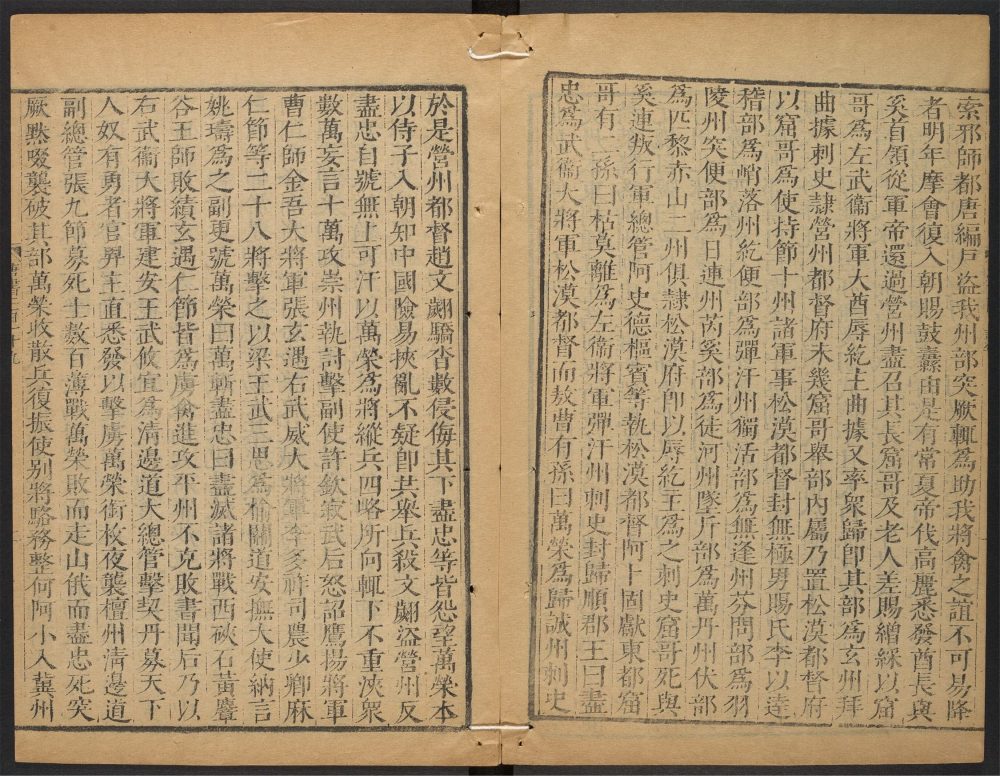 索邪師都唐編戶盜我州部突厥輒爲助我將禽之誼不可易降
者明年摩會復入朝賜鼓纛由是有常夏帝伐高麗悉發酋長與
奚首領從軍帝還過營州盡召其長窟哥及老人差賜繒綵以窟
哥爲左武衞將軍大酋辱紇主曲據又率衆歸卽其部爲玄州拜
曲據刺史隸營州都督府未幾窟哥舉部內屬乃置松漠都督府
以窟哥爲使持節十州諸軍事松漠都督封無極男賜氏李以達
稽部爲峭落州紇便部爲彈汗州獨活部爲無逢州芬問部爲羽
陵州突便部爲日連州芮奚部爲徒河州墜斤部爲萬丹州伏部
爲匹黎赤山二州俱隸松漠府卽以辱紇主爲之刺史窟哥死與
奚連叛行軍總管阿史德樞賓等執松漠都督阿卜固獻東都窟
哥有二孫曰枯莫離爲左衞將軍彈汗州刺史封歸順郡王曰盡
忠爲武衞大將軍松漠都督而敖曹有孫曰萬榮爲歸誠州刺史
於是營州都督趙文翽驕沓數侵侮其下盡忠等皆怨望萬榮本
以侍子入朝知中國險易挾亂不疑卽共舉兵殺文翽盜營州反
盡忠自號無上可汗以萬榮爲將縱兵四略所向輒下不重浹衆
數萬妄言十萬攻崇州執討擊副使許欽寂武后怒詔鷹揚將軍
曹仁師金吾大將軍張玄遇右武威大將軍李多祚司農少卿麻
仁節等二十八將擊之以梁王武三思爲榆關道安撫大使納言
姚璹爲之副更號萬榮曰萬斬盡忠曰盡滅諸將戰西硤石黃麞
谷王師敗績玄遇仁節皆爲虜禽進攻平州不克敗書聞后乃以
右武衞大將軍建安王武攸宜爲清邊道大總管擊契丹募天下
人奴有勇者官畀主直悉發以擊虜萬榮銜枚夜襲檀州清邊道
副總管張九節募死士數百薄戰萬榮敗而走山俄而盡忠死突
厥默啜襲破其部萬榮收散兵復振使别將駱務整何阿小入冀州